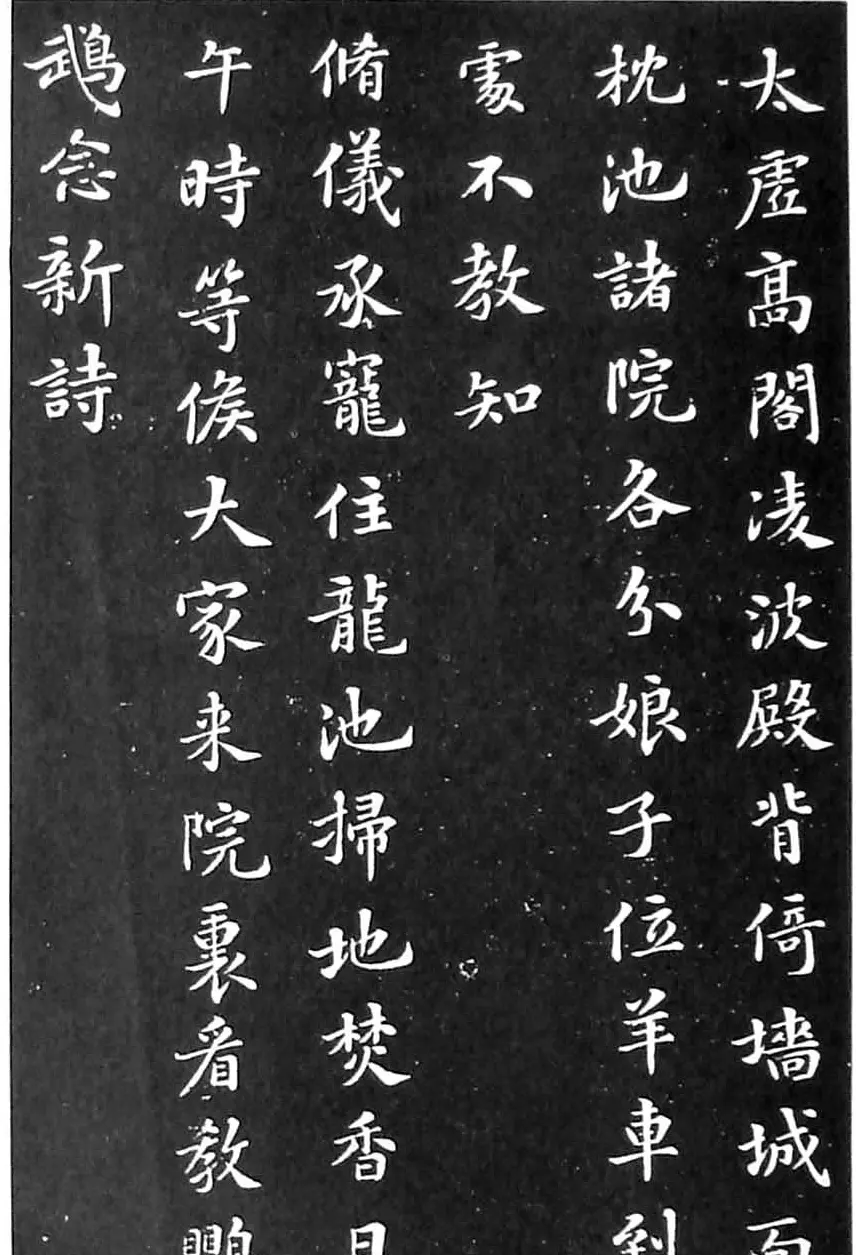 太虛高閣凌波殿背倚墻城
枕池諸院各分娘子位羊車到
處不教知
脩儀承寵住龍池掃地焚香
午時等候大家来院裏看教
鵡念新詩